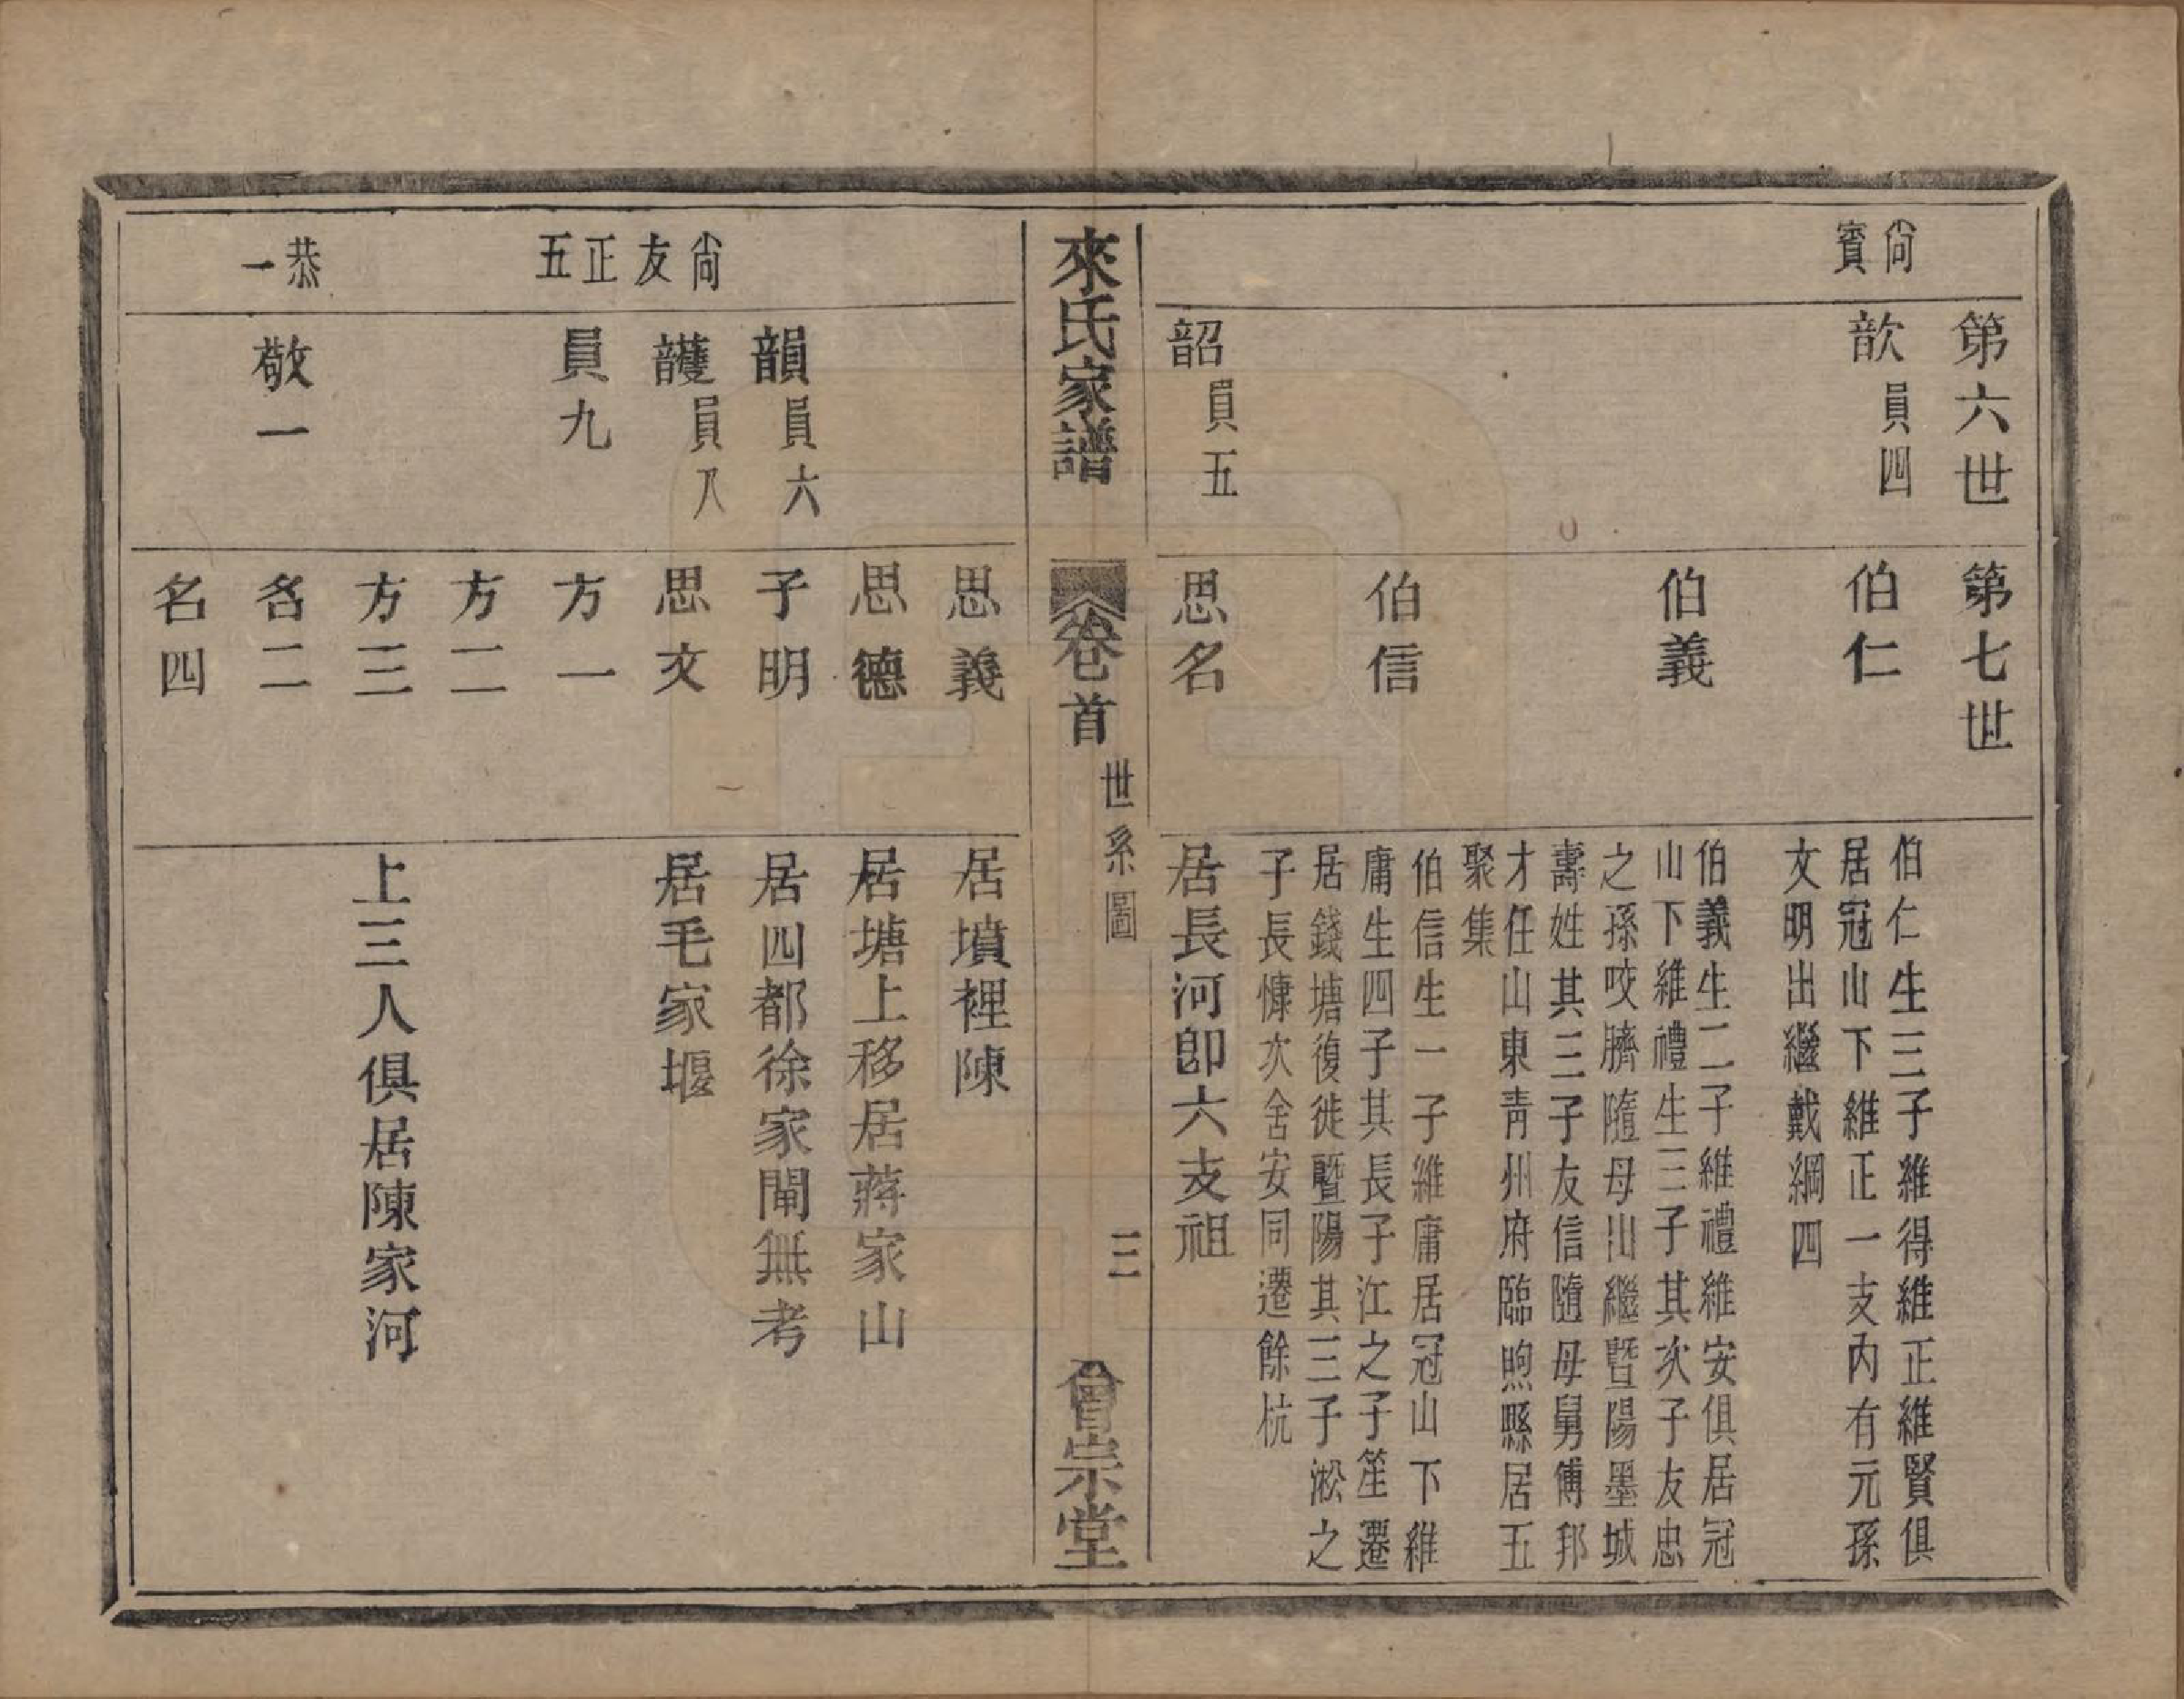 第六世
第七世
尙賓
歆員四
伯仁
伯仁生三子維得維正維賢俱
居冠山下維正一支內有元孫
文明出繼戴綱四
伯義
伯義生二子維禮維安俱居冠
山下維禮生三子其次子友忠
之孫咬臍隨母出繼暨陽墨城
壽姓其三子友信隨母舅傅邦
才任山東靑州府臨煦縣居五
聚集
伯信
伯信生一子維庸居冠山下維
庸生四子其長子江之子笙遷
居錢塘復徙暨陽其三子淞之
子長慷次舍安同遷餘杭
韶員五
思名
居長河卽六支祖
來氏家譜
卷首
世系圖
三
會宗堂
思義
居墳裡陳
思德
居塘上移居蔣家山
尙友
韻員六
子明
居四都徐家閘無考
頀員八
思文
居毛家堰
正五
員九
方一
方二
方三
上三人俱居陳家河
恭一
敬一
名二
名四